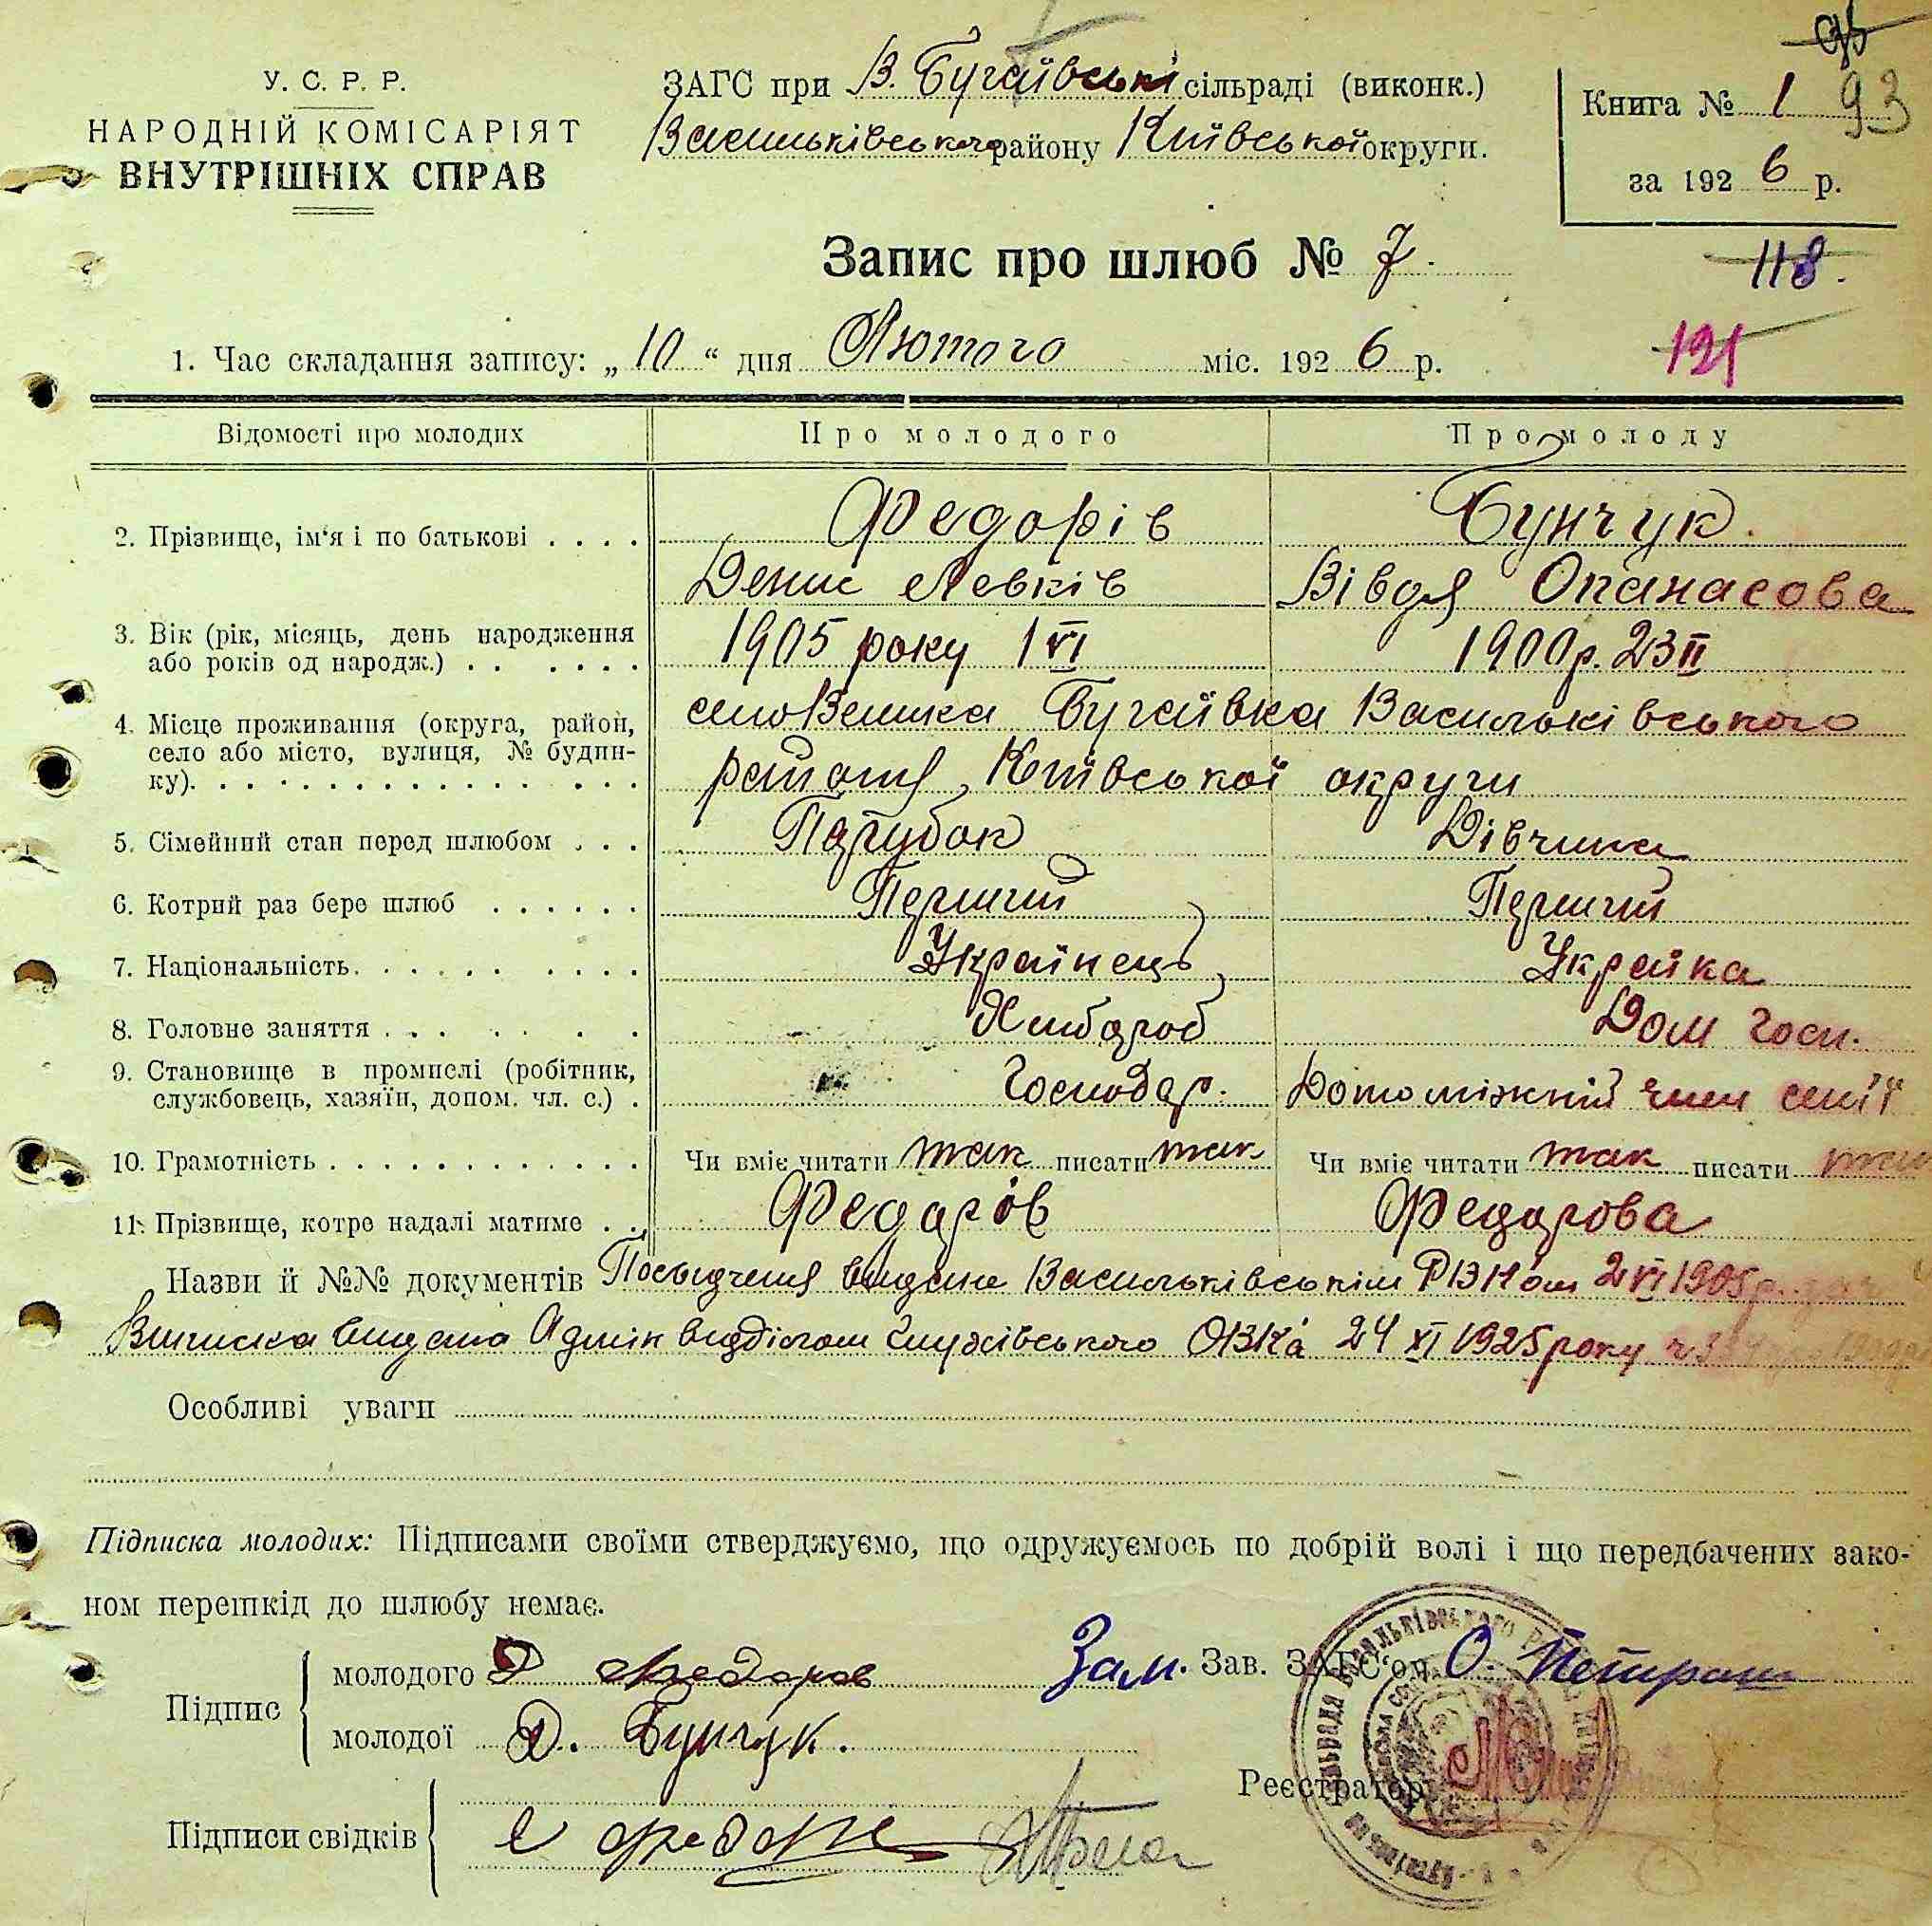 93
У. С. Р. Р.
НАРОДНІЙ КОМІСАРІЯТ
ВНУТРІШНІХ СПРАВ
ЗАГС при В. Бугаївські сільраді (виконк.)
Васильківського району Київської округи.
Книга № 1
за 1926 р.
Запис про шлюб № 7.
118.
121
1. Час складання запису: „10“ дня Лютого міс. 1926 р.
Відомості про молодих Про молодого Про молоду
2. Прізвище, ім'я і по батькові . . . . Федорів Бунчук.
Денис Левків Вівдя Опанасова
3. Вік (рік, місяць, день народження 1905 року 1 VI 1900 р. 23 II
або років од народж.) . . . . . .
4. Місце проживання (округа, район, село Велика Бугаївка Васильківського
село або місто, вулиця, № будин-
ку). . . . . . . . . . . . . . . района, Київської округи
5. Сімейний стан перед шлюбом . . . Парубок Дівчина
6. Котрий раз бере шлюб . . . . . . Перший Перший
7. Національність. . . . . . . . . . Українець Украйка
8. Головне заняття . . . . . . . Хлібороб Дом госп.
9. Становище в промислі (робітник, Господар. Допоміжний член семії
службовець, хазяїн, допом. чл. с.) .
10. Грамотність . . . . . . . . . . . . . Чи вміє читати так писати так Чи вміє читати так писати так
11. Прізвище, котре надалі матиме . . Федоров Федорова
Назви й №№ документів Посвідчення видане Васильківським РВК'ом 2 VI 1905 р.
Виписка видана Адмін відділом ОВК'а 24 XI 1925 року
Особливі уваги
Підписка молодих: Підписами своїми стверджуємо, що одружуємось по добрій волі і що передбачених зако-
ном перешкід до шлюбу немає.
Підпис
молодого Д Федоров
молодої Д. Бунчук.
Зам. Зав. ЗАГС'ом О. Петраш
Реєстратор
Підписи свідків